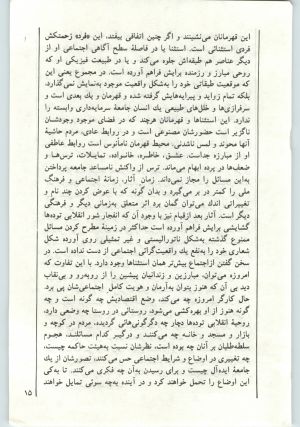 این قهرمانان می‌نشینند و اگر چنین اتفاقی بیفتد، این «فرد» زحمتکش
فردی استثنائی است. استثنا یا در فاصلهٔ سطح آگاهی اجتماعی او از
دیگر عناصر هم طبقه‌اش جلوه می‌کند و یا در طبیعت فیزیکی او که
روحی مبارز و رزمنده برایش فراهم آورده است. در مجموع یعنی این
که موقعیت طبقاتی خود را به‌شکل واقعیت موجود به‌نمایش نمی‌گذارد.
بلکه تمام زواید و پیرایه‌هایش گرفته شده و قهرمان و یك بعدی است و
سرفرازی‌ها و خلل‌های طبیعی یك انسان جامعهٔ سرمایه‌داری وابسته را
ندارد. این استثناها و قهرمانان هرچند که در فضای موجود وجودشان
ناگزیر است حضورشان مصنوعی است و در روابط عادی، مردم حاشیهٔ
آنها محوند و لمس ناشدنی. محیط قهرمان نامأنوس است روابط عاطفی
او از مبارزه جداست. عشق، خاطره، خانواده، تمایلات، ترس‌ها و
ضعف‌ها در پرده ابهام می‌ماند. ترس از واکنش نامساعد جامعه پرداختن
به‌این مسائل را مجاز نمی‌داند. زمان آثار، زمانهٔ اجتماعی و فرهنگ
ملی را کمتر در بر می‌گیرد و بدان گونه که با عوض کردن چند نام و
تغییراتی اندك می‌توان گمان برد اثر متعلق به‌زمانی دیگر و فرهنگی
دیگر است. آثار بعد ازقیام نیز با وجود آن که انفجار شور انقلابی توده‌ها
گشایشی برایش فراهم آورده است حداکثر در زمینهٔ مطرح کردن مسائل
ممنوع گذشته به‌شکل ناتورالیستی و غیر تمثیلی روی آورده شکل
شعاری خود را به‌نفع یك واقعیت‌گرائی اجتماعی از دست نداده است. در
سخن گفتن ازاجتماع بیش‌تر همان استثناها وجود دارد. با این تفاوت که
امروزه می‌توان، مبارزین و زندانیان پیشین را از روبه‌رو و بی‌نقاب
دید بی آن که هنوز بتوان به‌آرمان و هویت کامل اجتماعی‌شان پی برد.
حال کارگر امروزه چه می‌کند، وضع اقتصادیش چه گونه است و چه
گونه هنوز از او بهره‌کشی می‌شود، روستائی در روستا چه وضعی دارد،
روحیهٔ انقلابی توده‌ها دچار چه دگرگونی‌هائی گردیده، مردم در کوچه و
بازار و مسجد و خانه چه می‌کنند و درگیر کدام مسائلند، هجوم
سلطه‌طلبان بر آنان چه بوده است، نظرشان نسبت به‌هیئت حاکمه چیست،
چه تغییری در اوضاع و شرایط اجتماعی حس می‌کنند، تصورشان از یك
جامعهٔ ایده‌آل چیست و برای رسیدن به‌آن چه فکری می‌کنند. تا به‌کی
این اوضاع را تحمل خواهند کرد و در آینده به‌چه سوئی تمایل خواهند
۱۵